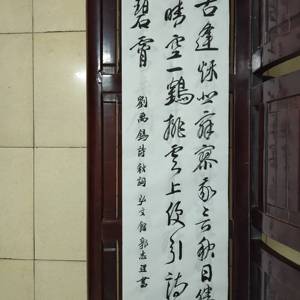 古逢秋悲寂寥我言秋日勝
晴空一鶴排雲上便引詩
碧霄
劉禹錫詩秋詞 弘文館 書